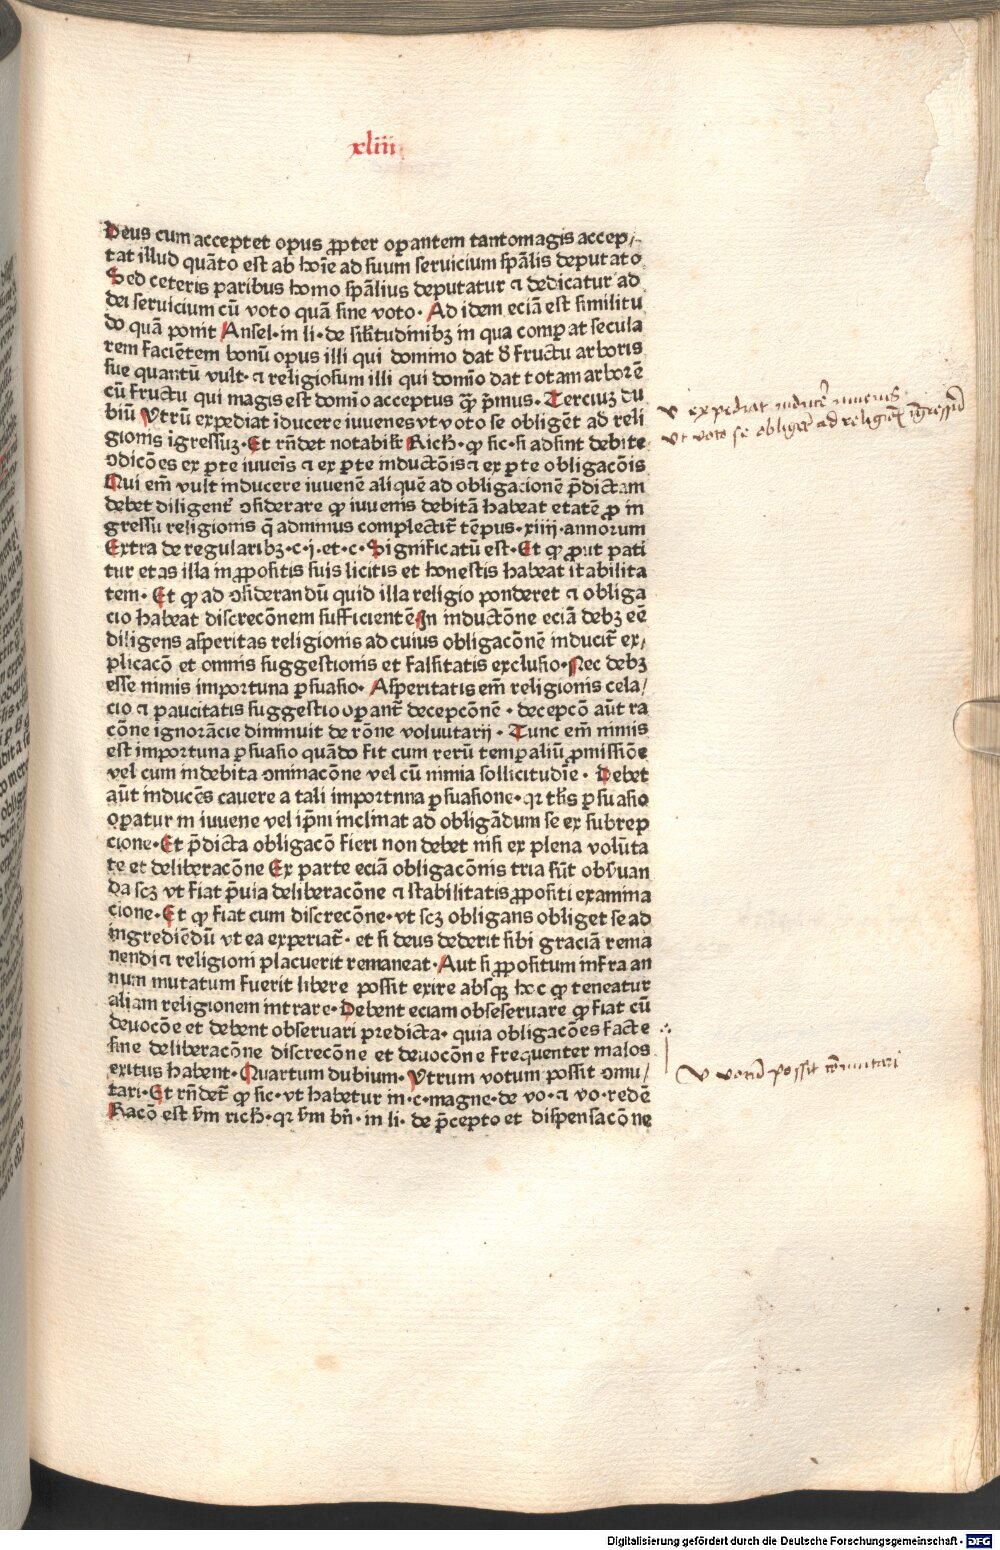 xliii
Deus cum acceptet opus ꝓpter oꝑantem tantomagis accep⸗
tat illud quāto est ab hoīe ad suum seruicium spālis deputato
Sed ceteris paribus homo spālius deputatur ⁊ dedicatur ad
dei seruicium cū voto quā sine voto· Ad idem eciā est similitu
do quā ponit Ansel· in li· de silitudinibꝫ in qua comꝑat secula
rem faciētem bonū opus illi qui domino dat d̄ fructu arboris
sue quantū vult· ⁊ religiosum illi qui domīo dat totam arborē
cū fructu qui magis est domīo acceptus qꝫ p̄mus· Terciuꝫ du
biū Vtrū expediat īducere iuuenes vt voto se obligēt ad reli
gionis īgressuꝫ· Et rn̄det notabilr̄ Rich· ꝙ sic· si adsint debite
ꝯdicōes ex ꝑte iuueīs ⁊ ex ꝑte inductōis ⁊ ex ꝑte obligacōis
Qui em̄ vult inducere iuuenē aliquē ad obligacionē p̄dictam
debet diligent̄ ꝯsiderare ꝙ iuuenis debitā habeat etatē ꝓ in
gressu religionis q̄ adminus complectit̄ tēpus· xiiii· annorum
Extra de regularibꝫ· c· j· et· c· Significatū est· Et ꝙ ꝓut pati
tur etas illa in ꝓpositis suis licitis et honestis habeat stabilita
tem· Et ꝙ ad ꝯsiderandū quid illa religio ponderet ⁊ obliga
cio habeat discrecōnem sufficientē In inductōne eciā debꝫ eē
diligens asperitas religionis ad cuius obligacōnē inducit̄ ex⸗
plicacō et omnis suggestionis et falsitatis exclusio· Nec debꝫ
esse nimis importuna ꝑsuasio· Asperitatis em̄ religionis cela⸗
cio ⁊ paucitatis suggestio oꝑant̄ decepcōnē· decepcō aūt ra
cōne ignorācie diminuit de rōne voluutarij· Tunc em̄ nimis
est importuna ꝑsuasio quādo fit cum rerū temꝑaliū ꝓmissiōe
vel cum indebita ꝯminacōne vel cū nimia sollicitudīe· Debet
aūt inducēs cauere a tali importnna ꝑsuasione· qr tl̄is ꝑsuasio
oꝑatur in iuuene vel ip̄m inclinat ad obligādum se ex subrep
cione· Et p̄dicta obligacō fieri non debet nisi ex plena volūta
te et deliberacōne Ex parte eciā obligacōnis tria sūt obs̄uan
da scꝫ vt fiat p̄uia deliberacōne ⁊ stabilitatis ꝓpositi examina
cione· Et ꝙ fiat cum discrecōne· vt scꝫ obligans obliget se ad
ingrediēdū vt ea experiat̄· et si deus dederit sibi graciā rema
nendi ⁊ religioni placuerit remaneat· Aut si ꝓpositum infra an
num mutatum fuerit libere possit exire absqꝫ hoc ꝙ teneatur
aliam religionem intrare· Debent eciam obseseruare ꝙ fiat cū
deuocōe et debent obseruari predicta· quia obligacōes facte
sine deliberacōne discrecōne et deuocōne frequenter malos
exitus habent· Quartum dubium· Vtrum votum possit ꝯmu⸗
tari· Et rn̄det̄ ꝙ sic· vt habetur in· c· magne· de vo· ⁊ vo· redē
Racō est s̄m rich· qr s̄m bn̄· in li· de p̄cepto et dispensacōne
v expediat inducere iuuenes
vt voto se obligent ad religionis ingressum
v votum possit commutari
Digitalisierung gefördert durch die Deutsche Forschungsgemeinschaft - DFG